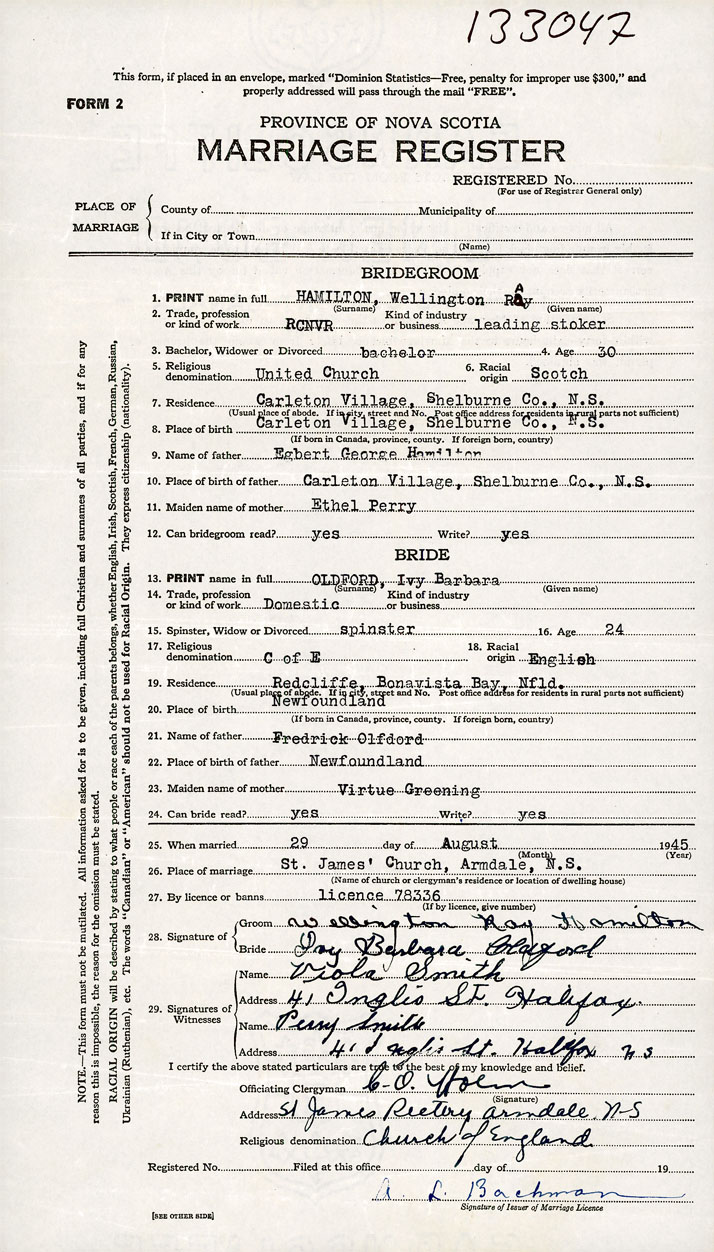 133047
This form, if placed in an envelope, marked "Dominion Statistics—Free, penalty for improper use $300," and
properly addressed will pass through the mail "FREE".
FORM 2
PROVINCE OF NOVA SCOTIA
MARRIAGE REGISTER
REGISTERED No.
(For use of Registrar General only)
PLACE OF MARRIAGE
County of Municipality of
If in City or Town
(Name)
BRIDEGROOM
1. PRINT name in full HAMILTON, Wellington Ray
(Surname) (Given name)
2. Trade, profession or kind of work RCNVR Kind of industry or business leading stoker
3. Bachelor, Widower or Divorced bachelor 4. Age 30
5. Religious denomination United Church 6. Racial origin Scotch
7. Residence Carleton Village, Shelburne Co., N.S.
(Usual place of abode. If in city, street and No. Post office address for residents in rural parts not sufficient)
8. Place of birth Carleton Village, Shelburne Co., N.S.
(If born in Canada, province, county. If foreign born, country)
9. Name of father Egbert George Hamilton
10. Place of birth of father Carleton Village, Shelburne Co., N.S.
11. Maiden name of mother Ethel Perry
12. Can bridegroom read? yes Write? yes
BRIDE
13. PRINT name in full OLDFORD, Ivy Barbara
(Surname) (Given name)
14. Trade, profession or kind of work Domestic Kind of industry or business
15. Spinster, Widow or Divorced spinster 16. Age 24
17. Religious denomination C of E 18. Racial origin English
19. Residence Redcliffe, Bonavista Bay, Nfld.
(Usual place of abode. If in city, street and No. Post office address for residents in rural parts not sufficient)
20. Place of birth Newfoundland
(If born in Canada, province, county. If foreign born, country)
21. Name of father Fredrick Olfdord
22. Place of birth of father Newfoundland
23. Maiden name of mother Virtue Greening
24. Can bride read? yes Write? yes
25. When married 29 day of August 1945
(Month) (Year)
26. Place of marriage St. James' Church, Armdale, N.S.
(Name of church or clergyman's residence or location of dwelling house)
27. By licence or banns licence 78336
(If by licence, give number)
28. Signature of
Groom Wellington Ray Hamilton
Bride Ivy Barbara Oldford
29. Signatures of Witnesses
Name Viola Smith
Address 41 Inglis St. Halifax.
Name Perry Smith
Address 41 Inglis St. Halifax N S
I certify the above stated particulars are true to the best of my knowledge and belief.
Officiating Clergyman
(Signature)
Address St James Rectory Armdale N-S
Religious denomination Church of England
Registered No. Filed at this office day of 19
A. L. Bachman
Signature of Issuer of Marriage Licence
[SEE OTHER SIDE]
NOTE.—This form must not be mutilated. All information asked for is to be given, including full Christian and surnames of all parties, and if for any
reason this is impossible, the reason for the omission must be stated.
RACIAL ORIGIN will be described by stating to what people or race each of the parents belongs, whether English, Irish, Scottish, French, German, Russian,
Ukrainian (Ruthenian), etc. The words "Canadian" or "American" should not be used for Racial Origin. They express citizenship (nationality).